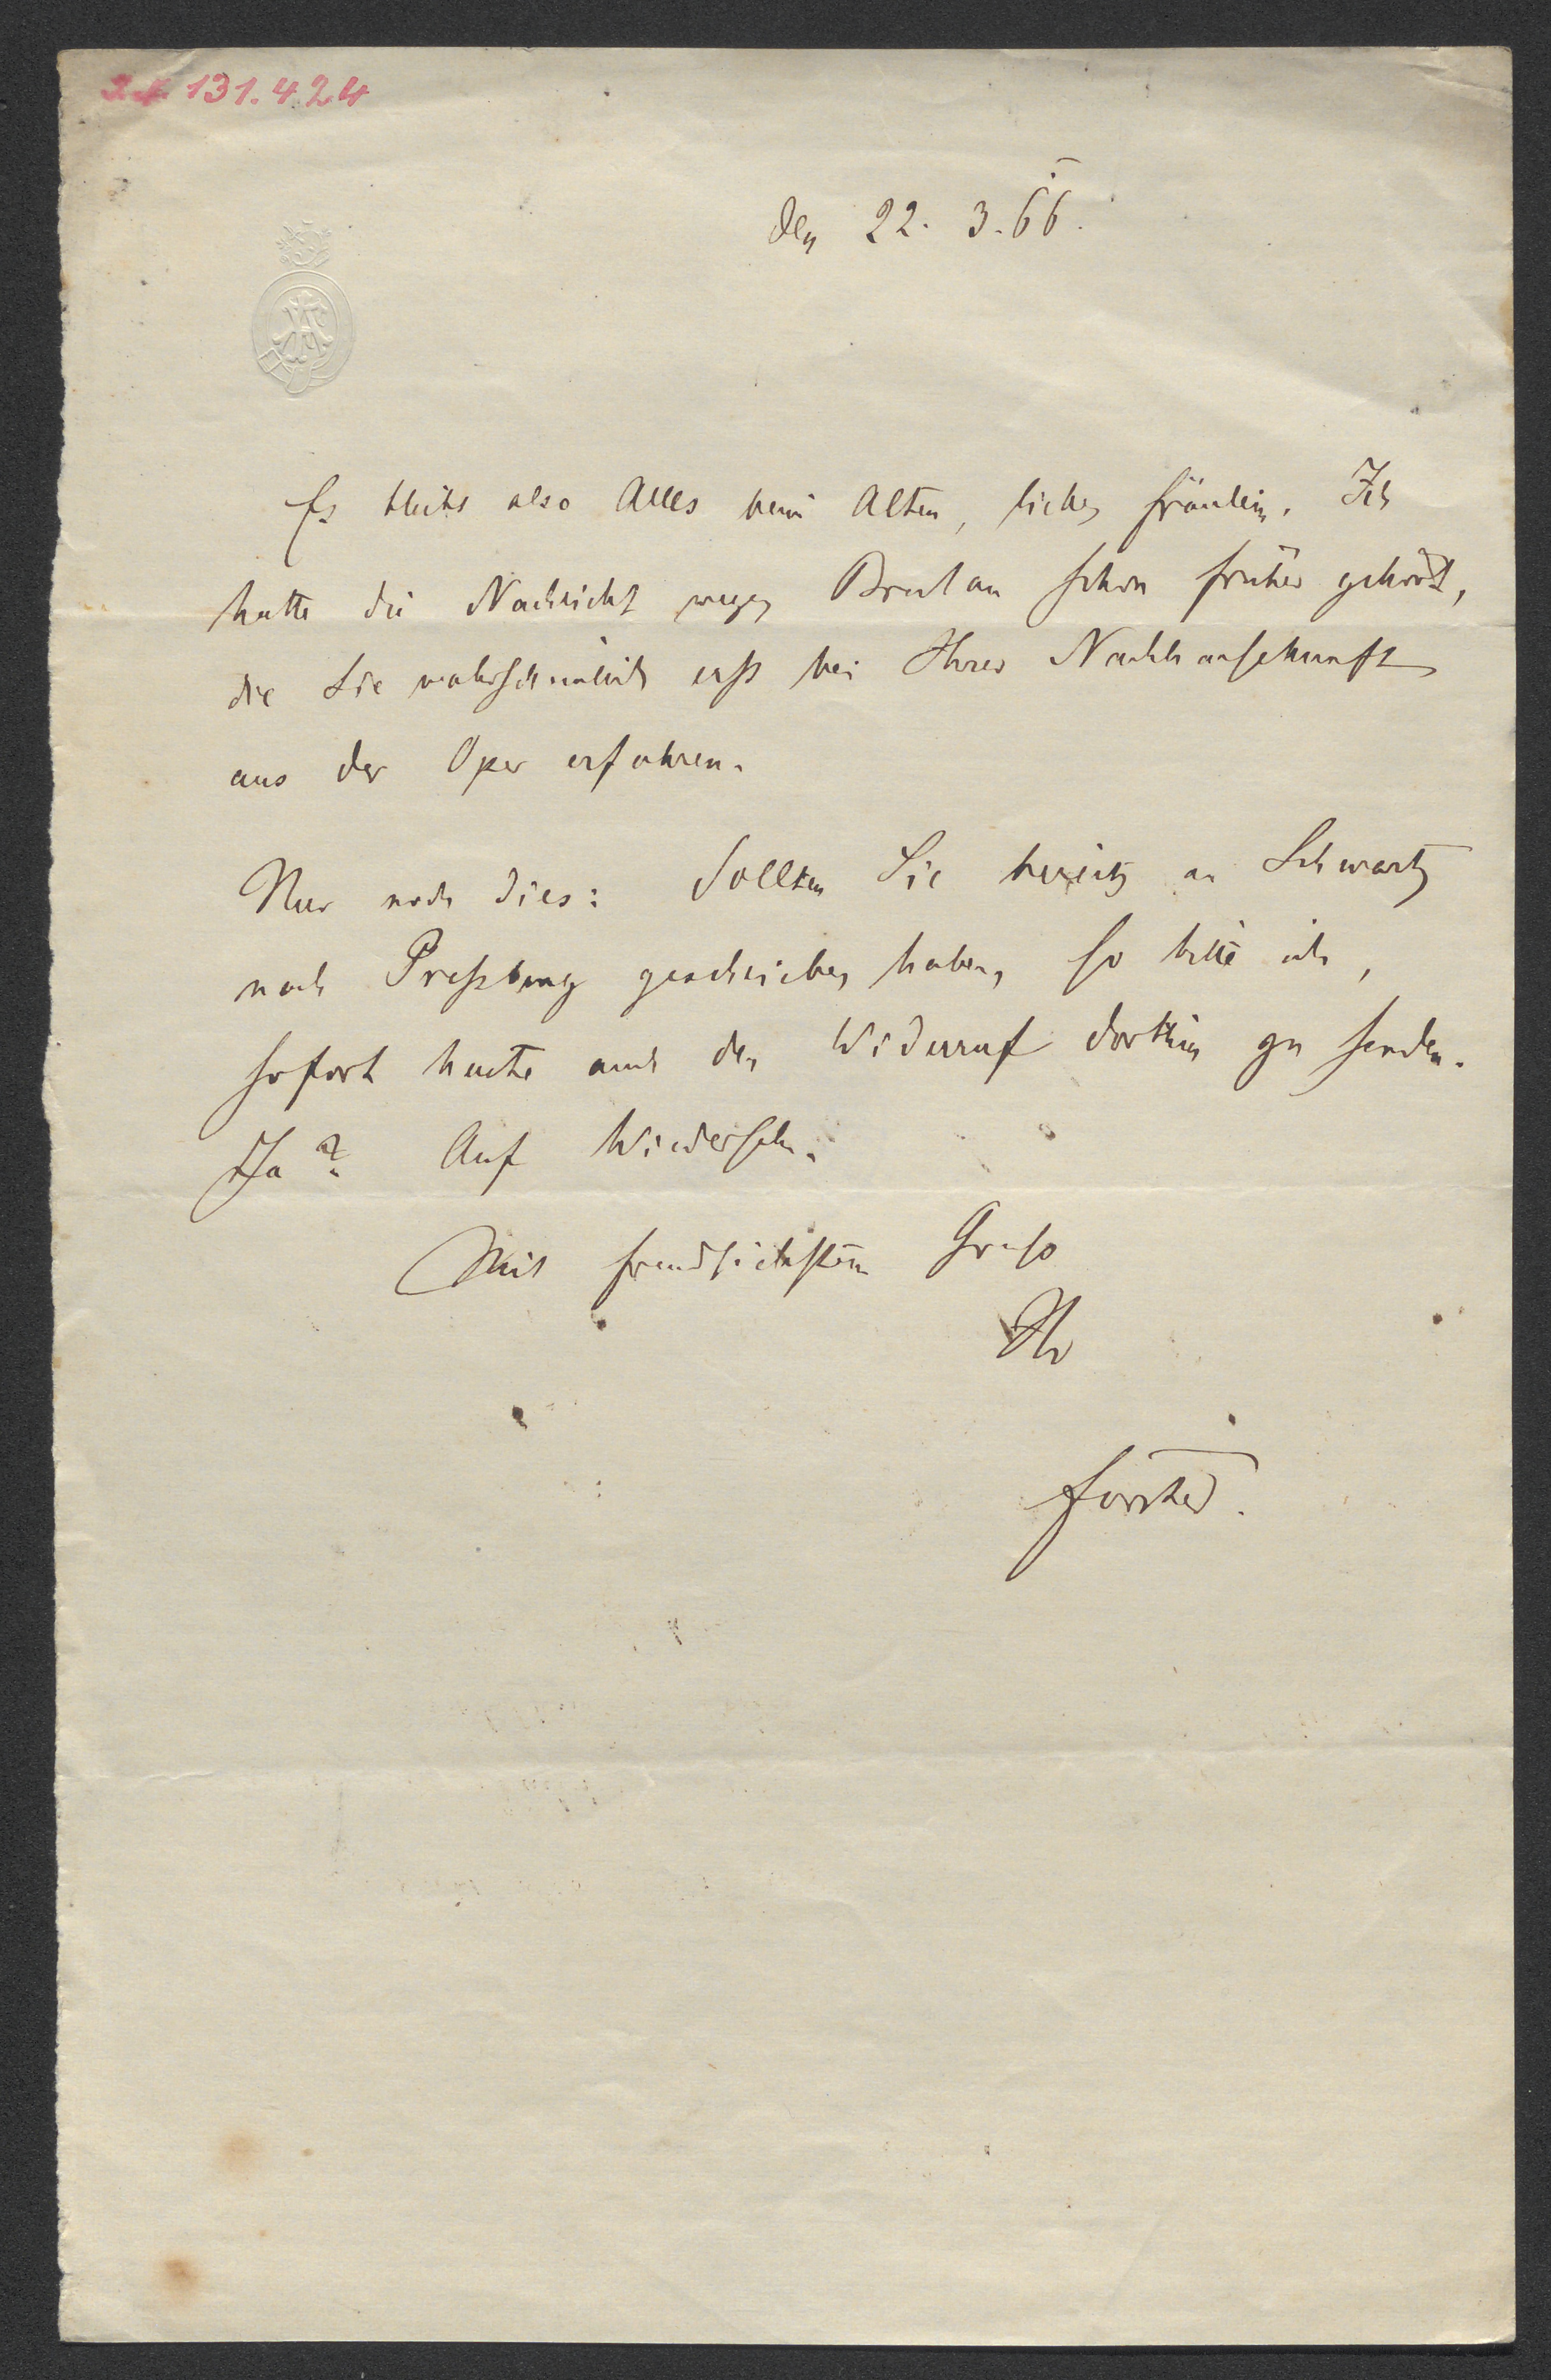 I.N. 131.424
den 22. 3. 66.
Es bleibt also Alles beim Alten, liebes Fräulein. Ich
hatte die Nachricht wegen Breslau schon früher gehört,
die Sie wahrscheinlich erst bei Ihrer Nachhausekunft
aus der Oper erfahren.
Nur noch dies: Sollten Sie bereits an Schwartz
nach Preßburg geschrieben haben, so bitte ich,
sofort heute auch den Widerruf dorthin zu senden.
Ja? Auf Wiedersehn.
Mit freundlichstem Gruß
Ihr
Förster.